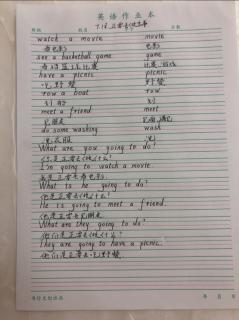 英语作业本
watch a movie movie
看电影 电影
see a basketball game game
看场篮球比赛 比赛,游戏
have a picnic picnic
吃野餐 野餐
row a boat row
划船 划
meet a friend meet
见朋友
do some washing wash
洗衣服 洗
What are you going to do?
你是正要去做什么?
I'm going to watch a movie.
我是正要去看电影.
What is he going to do?
他是正要去做什么?
He is going to meet a friend.
他是正要去见朋友
What are they going to do?
他们是正要去做什么?
They are going to have a picnic.
他们是正要去吃野餐.
年 月 日